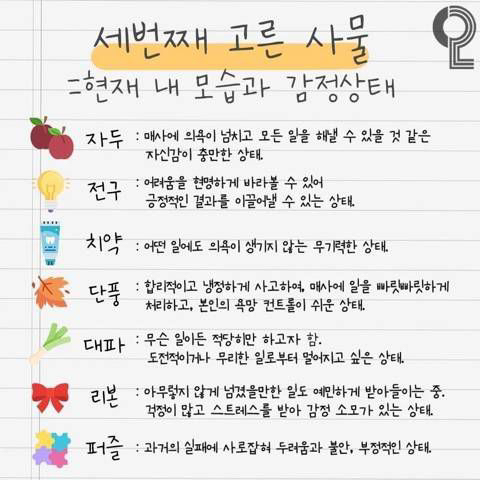 세번째 고른 사물
=현재 내 모습과 감정상태
자두 : 매사에 의욕이 넘치고 모든 일을 해낼 수 있을 것 같은
자신감이 충만한 상태.
전구 : 어려움을 현명하게 바라볼 수 있어
긍정적인 결과를 이끌어낼 수 있는 상태.
치약 : 어떤 일에도 의욕이 생기지 않는 무기력한 상태.
단풍 : 합리적이고 냉정하게 사고하여, 매사에 일을 빠릿빠릿하게
처리하고, 본인의 욕망 컨트롤이 쉬운 상태.
대파 : 무슨 일이든 적당히만 하고자 함.
도전적이거나 무리한 일로부터 멀어지고 싶은 상태.
리본 : 아무렇지 않게 넘겼을만한 일도 예민하게 받아들이는 중.
걱정이 많고 스트레스를 받아 감정 소모가 있는 상태.
퍼즐 : 과거의 실패에 사로잡혀 두려움과 불안, 부정적인 상태.